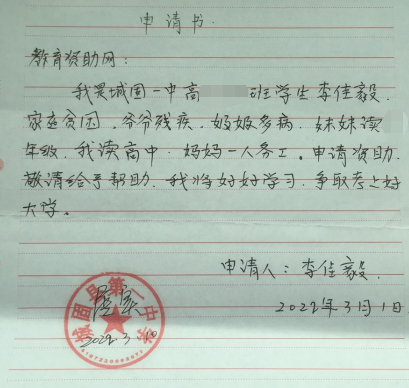 申请书.
教育资助网：
我是城固一中高 班学生李佳毅.
家庭贫困，爷爷残疾，奶奶多病，妹妹读
年级，我读高中，妈妈一人务工。申请资助.
敬请给予帮助，我将好好学习，争取考上好
大学。
申请人：李佳毅.
2022年3月1日.
城固县第一中学
2022.3.10